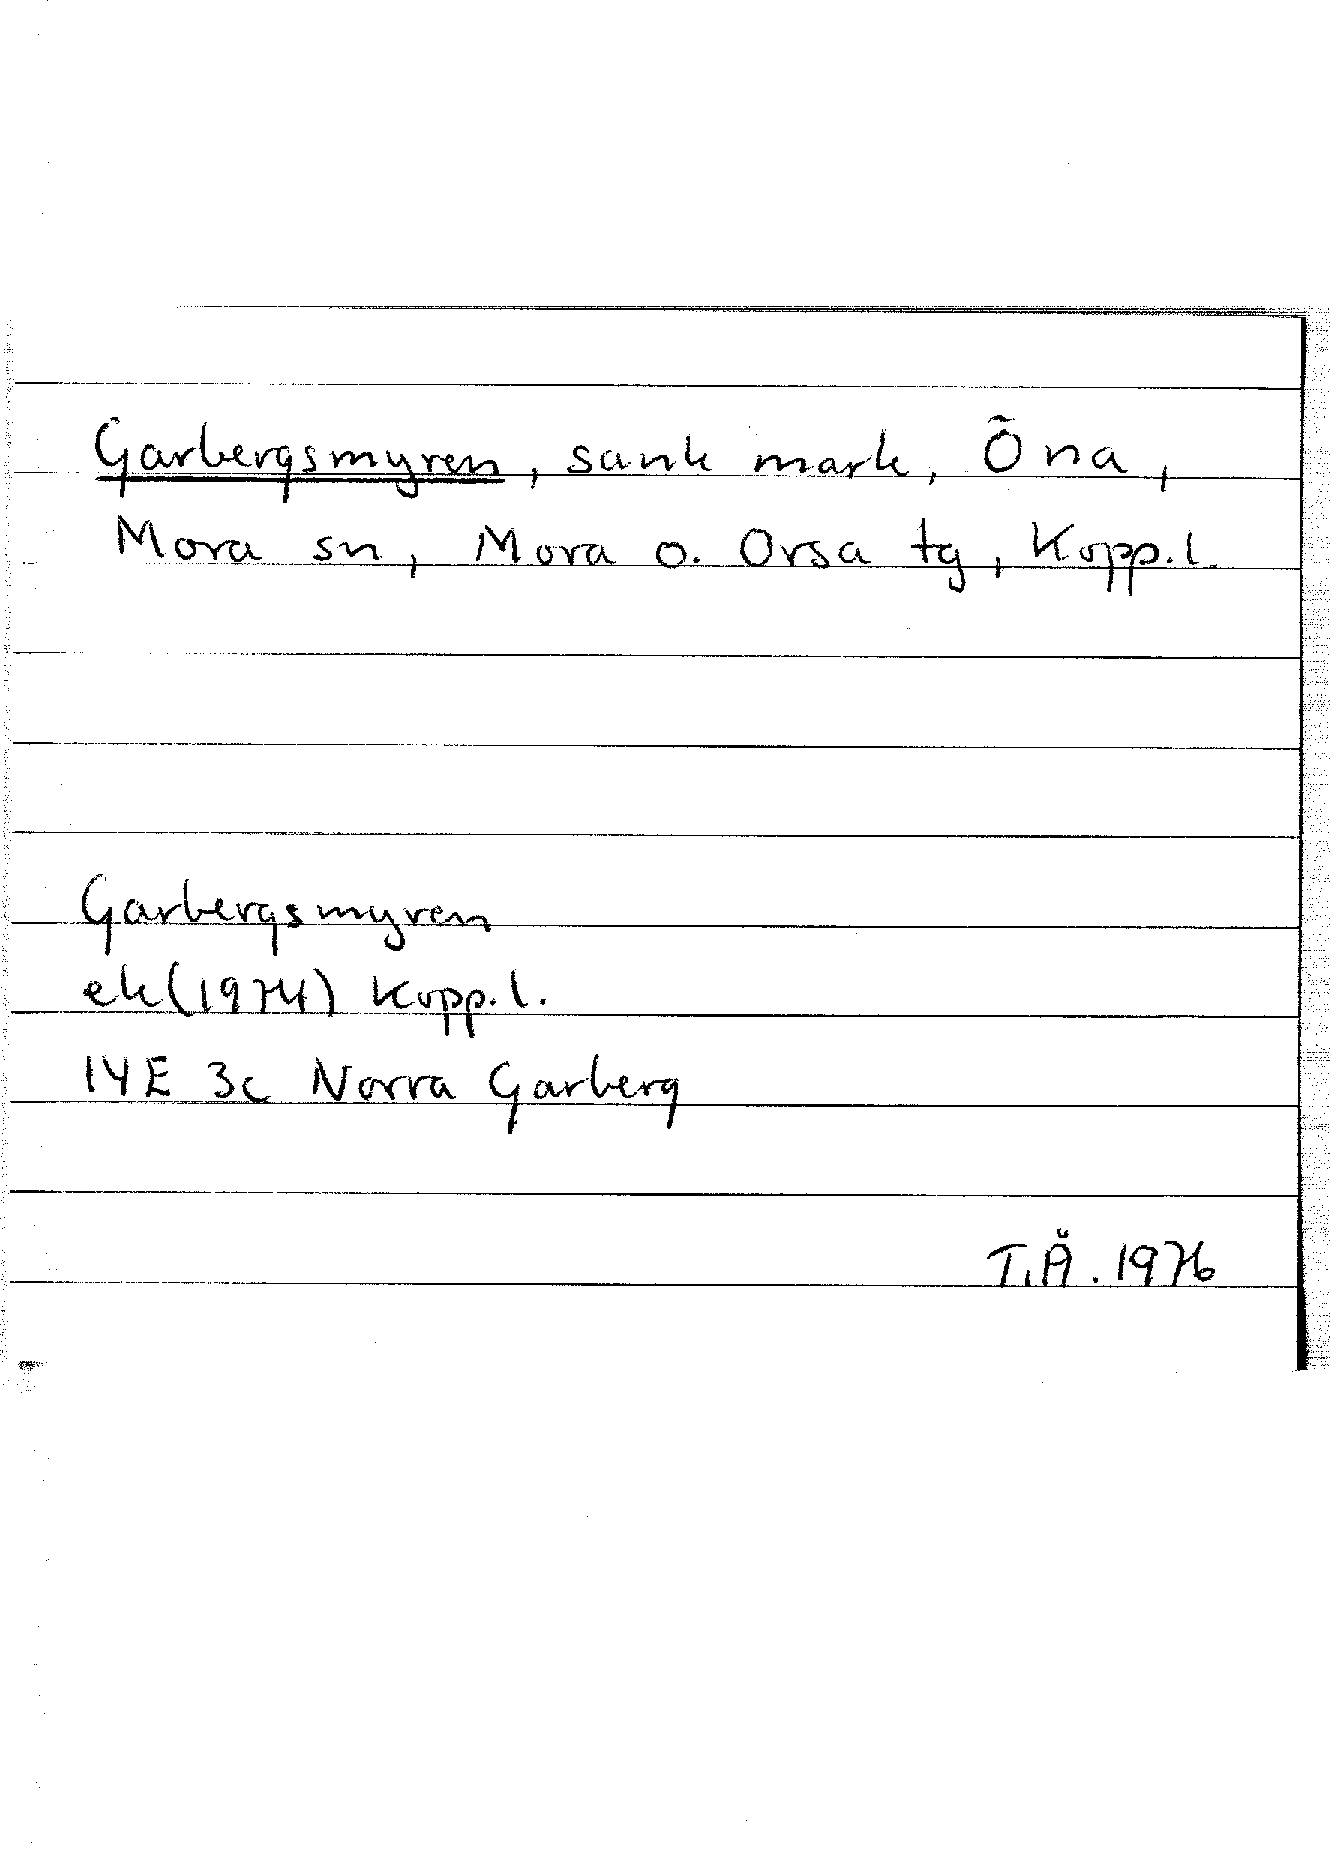 Garbergsmyren, sank mark, Öna,
Mora sn, Mora o. Orsa tg, Kopp.l.
Garbergsmyren
ek(1974) Kopp.l.
14E 3c Norra Garberg
T.Å. 1976